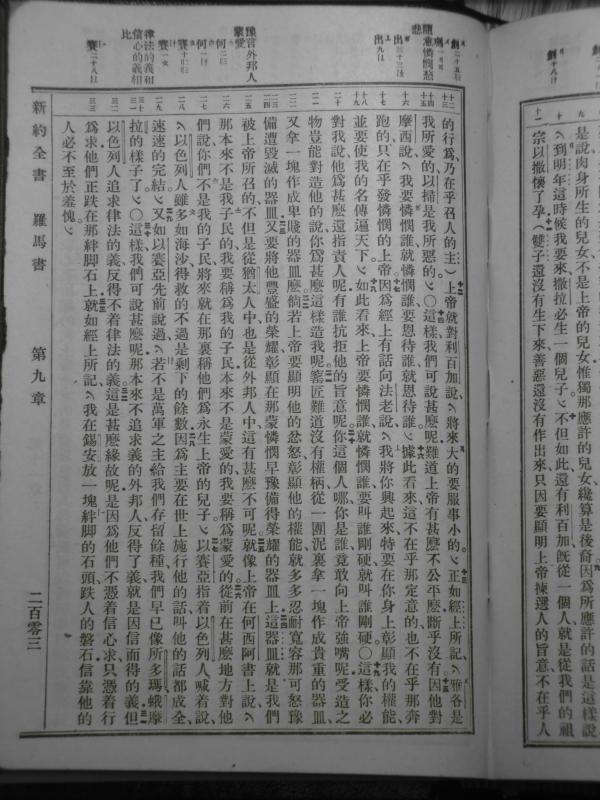 是說肉身所生的兒女不是上帝的兒女惟獨那應許的兒女纔算是後裔因爲所應許的話是這樣說
到明年這時候我要來撒拉必生一個兒子不但如此還有利百加旣從一個人就是從我們的祖
宗以撒懷了孕(雙子還沒有生下來善惡還沒有作出來只因要顯明上帝揀選人的旨意不在乎人
的行爲乃在乎召人的主)上帝就對利百加說將來大的要服事小的正如經上所記雅各是
我所愛的以掃是我所惡的〇這樣我們可說甚麽呢難道上帝有甚麽不公平麽斷乎沒有因他對
摩西說我要憐憫誰就憐憫誰要恩待誰就恩待誰據此看來這不在乎那定意的也不在乎那奔
跑的只在乎發憐憫的上帝因爲經上有話向法老說我將你興起來特要在你身上彰顯我的權能
並要使我的名傳遍天下如此看來上帝要憐憫誰就憐憫誰要叫誰剛硬就叫誰剛硬〇這樣你必
對我說他爲甚麽還指責人呢有誰抗拒他的旨意呢你這個人哪你是誰竟敢向上帝強嘴呢受造之
物豈能對造他的說你爲甚麽這樣造我呢窰匠難道沒有權柄從一團泥裏拿一塊作成貴重的器皿
又拿一塊作成卑賤的器皿麽倘若上帝要顯明他的忿怒彰顯他的權能就多多忍耐寬容那可怒豫
備遭毀滅的器皿又要將他豐盛的榮耀彰顯在那蒙憐憫早豫備得榮耀的器皿上這器皿就是我們
被上帝所召的不但是從猶太人中也是從外邦人中這有甚麽不可呢就像上帝在何西阿書上說
那本來不是我子民的我要稱爲我的子民本來不是蒙愛的我要稱爲蒙愛的從前在甚麽地方對他
們說你們不是我的子民將來就在那裏稱他們爲永生上帝的兒子以賽亞指着以色列人喊着說
以色列人雖多如海沙得救的不過是剩下的餘數因爲主要在世上施行他的話叫他的話都成全
速速的完結又如以賽亞先前說過若不是萬軍之主給我們存留餘種我們早已像所多瑪蛾摩
拉的樣子了〇這樣我們可說甚麽呢那本來不追求義的外邦人反得了義就是因信而得的義但
以色列人追求律法的義反得不着律法的義這是甚麽緣故呢是因爲他們不憑着信心求只憑着行
爲求他們正跌在那絆腳石上就如經上所記我在錫安放一塊絆腳的石頭跌人的磐石信靠他的
人必不至於羞愧
隨意憐憫愁
豫言外邦人
蒙愛
律法的義相
信心的義相
比
新約全書 羅馬書 第九章 二百零三